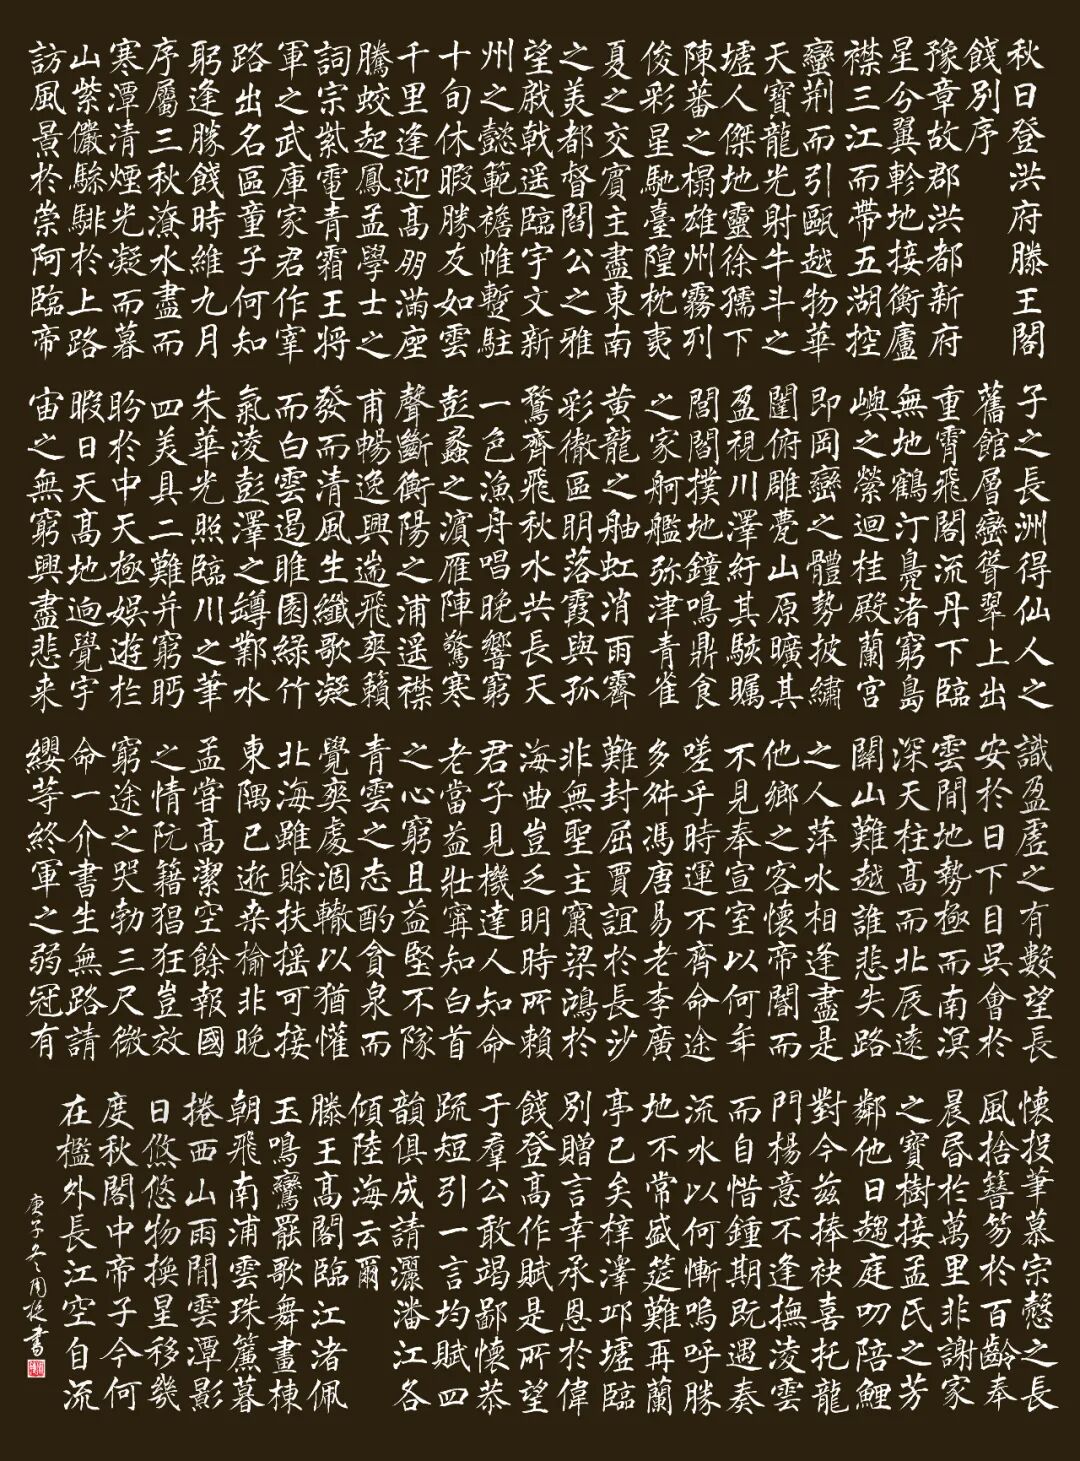 秋日登洪府滕王閣
餞別序
豫章故郡洪都新府
星分翼軫地接衡廬
襟三江而帶五湖控
蠻荆而引甌越物華
天寶龍光射牛斗之
墟人傑地靈徐孺下
陳蕃之榻雄州霧列
俊彩星馳臺隍枕夷
夏之交賓主盡東南
之美都督閻公之雅
望棨戟遥臨宇文新
州之懿範襜帷暫駐
十旬休暇勝友如雲
千里逢迎高朋滿座
騰蛟起鳳孟學士之
詞宗紫電青霜王將
軍之武庫家君作宰
路出名區童子何知
躬逢勝餞時維九月
序屬三秋潦水盡而
寒潭清煙光凝而暮
山紫儼驂騑於上路
訪風景於崇阿臨帝
子之長洲得仙人之
舊館層巒聳翠上出
重霄飛閣流丹下臨
無地鶴汀鳧渚窮島
嶼之縈迴桂殿蘭宮
即岡巒之體勢披繡
闥俯雕甍山原曠其
盈視川澤紆其駭矚
閭閻撲地鐘鳴鼎食
之家舸艦弥津青雀
黃龍之舳虹消雨霽
彩徹區明落霞與孤
鶩齊飛秋水共長天
一色漁舟唱晚響窮
彭蠡之濱雁陣驚寒
聲斷衡陽之浦遥襟
甫暢逸興遄飛爽籟
發而清風生纖歌凝
而白雲遏睢園綠竹
氣淩彭澤之罇鄴水
朱華光照臨川之筆
四美具二難并窮眄
盻於中天極娛遊於
暇日天高地迥覺宇
宙之無窮興盡悲来
識盈虛之有數望長
安於日下目吳會於
雲間地勢極而南溟
深天柱高而北辰遠
關山難越誰悲失路
之人萍水相逢盡是
他鄉之客懷帝閽而
不見奉宣室以何年
嗟乎時運不齊命途
多舛馮唐易老李廣
難封屈賈誼於長沙
非無聖主竄梁鴻於
海曲豈乏明時所賴
君子見機達人知命
老當益壯寧知白首
之心窮且益堅不隊
青雲之志酌貪泉而
覺爽處涸轍以猶懽
北海雖賒扶摇可接
東隅已逝桑榆非晚
孟嘗高潔空餘報國
之情阮籍猖狂豈效
窮途之哭勃三尺微
命一介書生無路請
纓等終軍之弱冠有
懷投筆慕宗愨之長
風捨簪笏於百齡奉
晨昏於萬里非謝家
之寶樹接孟氏之芳
鄰他日趨庭叨陪鯉
對今茲捧袂喜托龍
門楊意不逢撫淩雲
而自惜鍾期既遇奏
流水以何慚嗚呼勝
地不常盛筵難再蘭
亭已矣梓澤邱墟臨
別贈言幸承恩於偉
餞登高作賦是所望
于羣公敢竭鄙懷恭
疏短引一言均賦四
韻俱成請灑潘江各
傾陸海云爾
滕王高閣臨江渚佩
玉鳴鸞罷歌舞畫棟
朝飛南浦雲珠簾暮
捲西山雨閒雲潭影
日悠悠物換星移幾
度秋閣中帝子今何
在檻外長江空自流
庚子冬周書